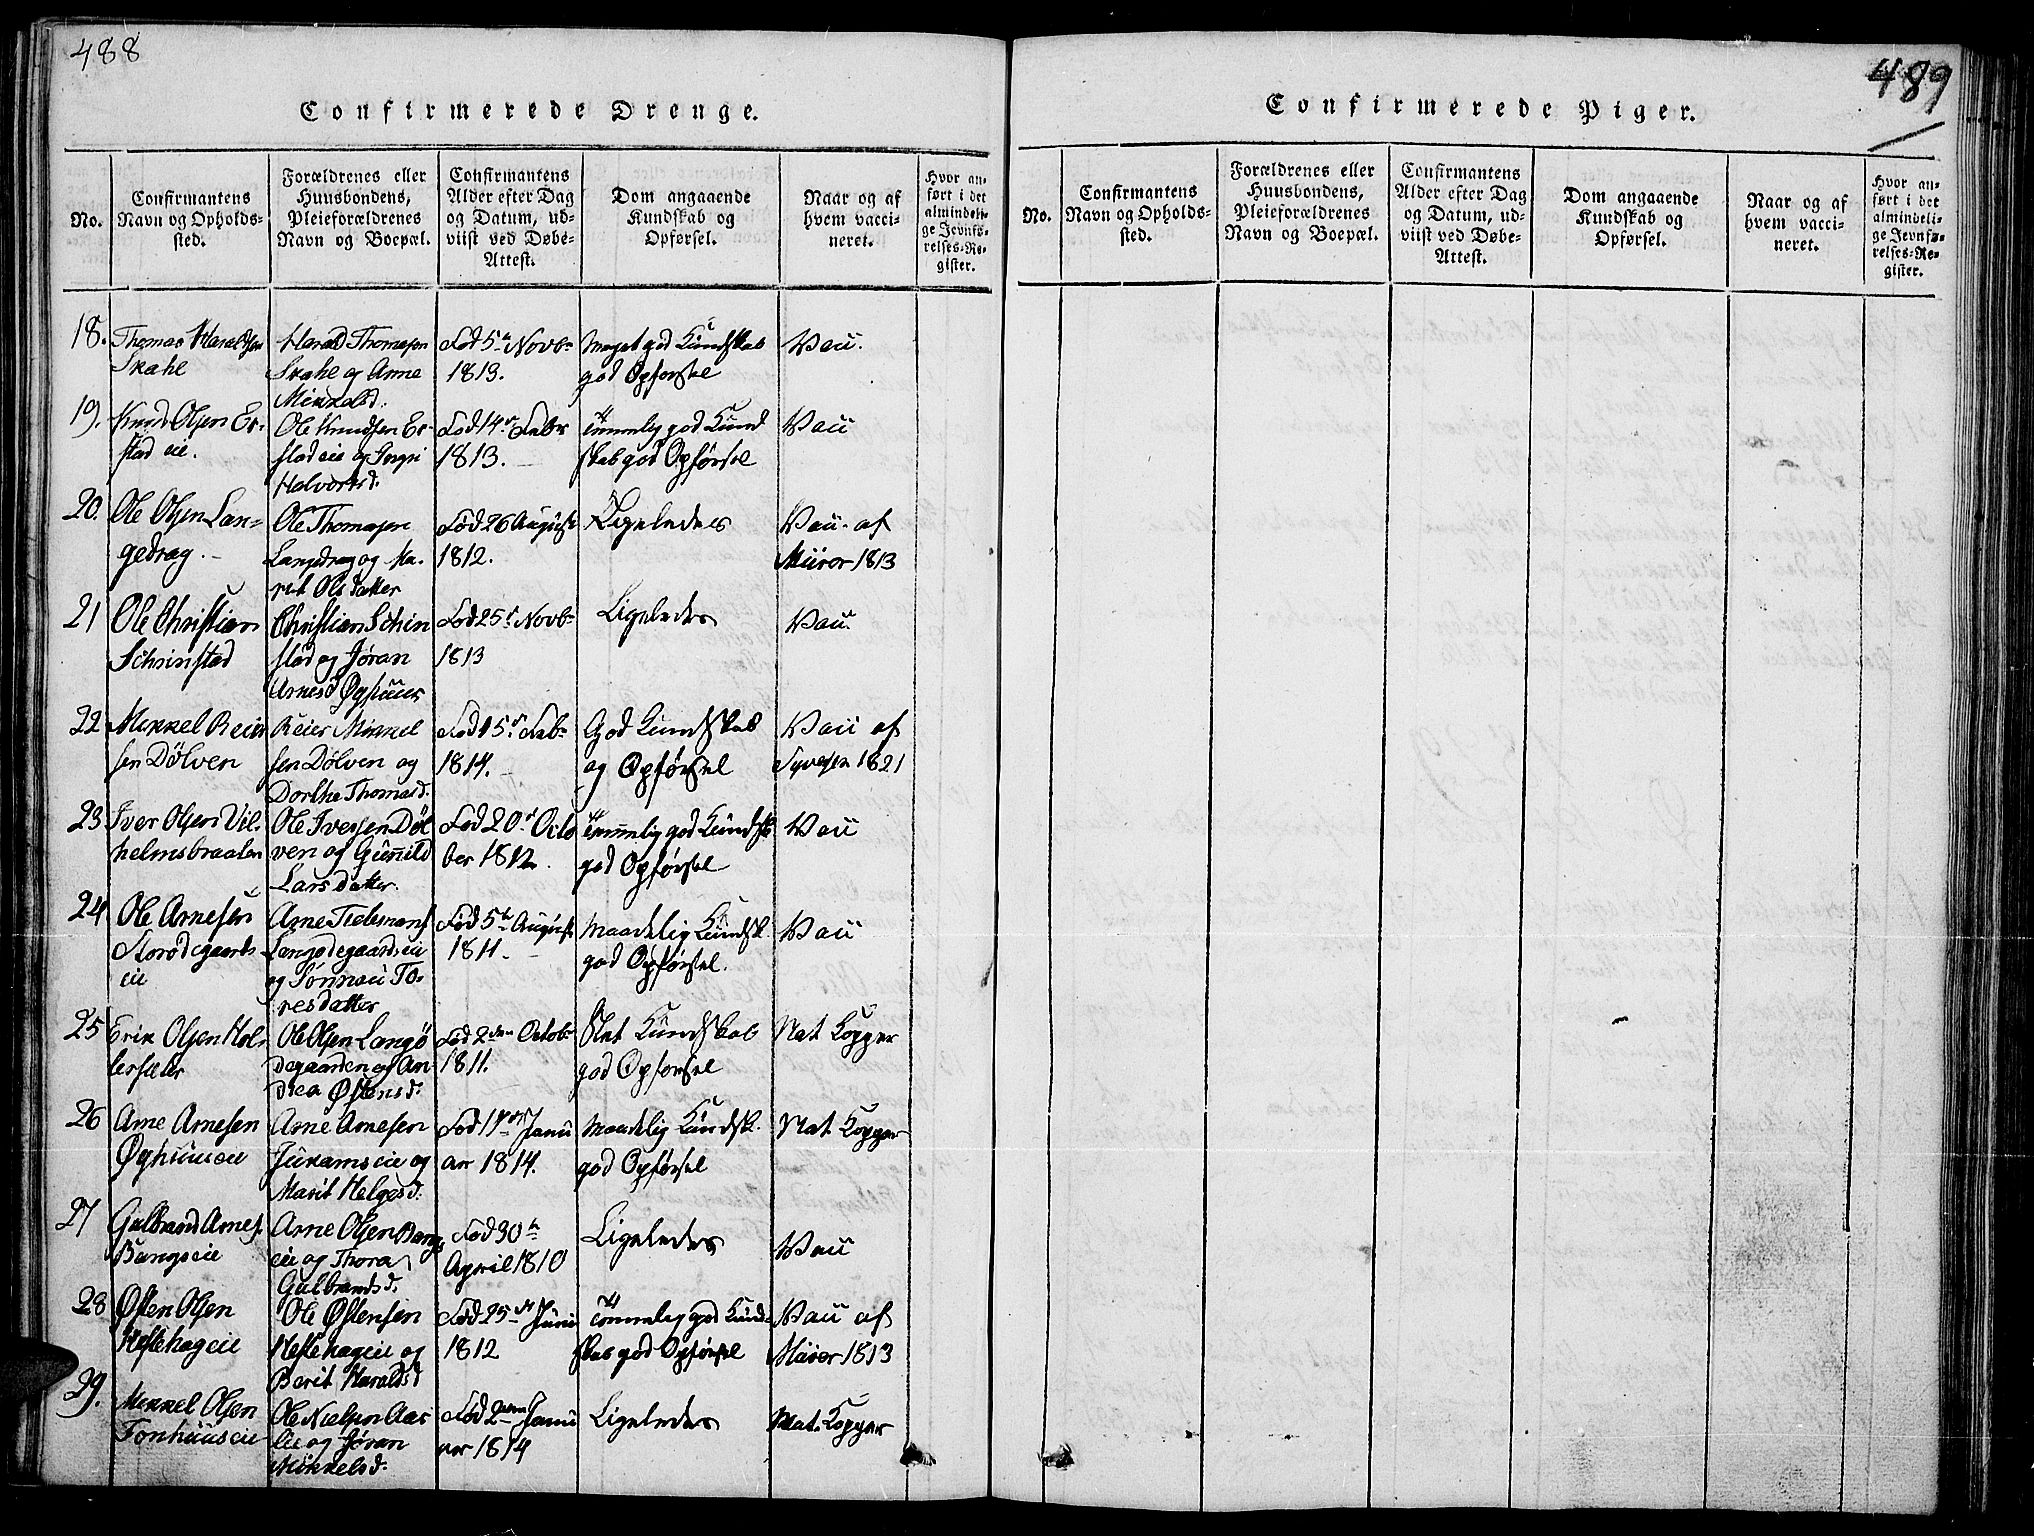 488
Confirmerede Drenge.
No.
Confirmantens
Navn og Opholds-
sted.
Forældrenes eller
Huusbondens,
Pleieforældrenes
Navn og Boepæl.
Confirmantens
Alder efter Dag
og Datum, ud-
viist ved Døbe-
Attest.
Dom angaaende
Kundskab og
Opførsel.
Naar og af
hvem vacci-
neret.
Hvor an-
ført i det
almindeli-
ge Jevnfø-
relses-Re-
gister.
18.
Thomas Haraldsen
Skahl
Harald Thomesen
Skahl og Anne
Mikkelsd.
Fød 5te Novbr
1813.
Meget god Kundskab
god Opførsel
Vacc.
19.
Knud Olsen Er-
stad eie.
Ole Knudsen Er-
stad eie og
Halvorsd.
Fød 14de Febr
1813.
temmelig god Kund
skab god Opførsel
Vacc
20.
Ole Olsen Lan-
gedrag.
Ole Thomasen
Langedrag og Ma-
rit Olsdatter
Fød 26 August
1812.
Ligeledes
Vacc. af
Müror 1813
21
Ole Christian
Schrinstad
Christian Schin
stad og Jøran
Arnesd
Fød 25de Novbr
1813
Ligeledes
Vacc.
22
Mikkel Reier
sen Dølven
Reier Mikkel
sen Dølven og
Dorthe Thomasd.
Fød 15de Febr
1814.
God Kundskab
og Opførsel
Vacc af
Syversen 1821
23
Iver Olsen Vil-
helmsbraaten
Ole Iversen Døl
ven og Gunild
Larsdatter.
Fød 20de Octo
ber 1812.
temmelig god Kundsk
god Opførsel
Vacc
24
Ole Arnesen
Storødegaards
eie
Arne Tielemans
Langødegaards eie
og Tønnau To-
resdatter
Fød 5te August
1811.
Maadelig Kundsk.
god Opførsel.
Vacc
25
Erik Olsen Hol-
lersæter
Ole Olsen Langø
degaarden og An
drea Østensd.
Fød 2den Octob
1811.
Slet Kundskab
god Opførsel
Nat Kopper
26
Arne Arnesen
Øghuuseie
Arne Arnesen
Juvkamseie og
Marit Helgesd.
Fød Janu
ar 1814.
Maadelig Kundsk.
god Opførsel
Nat. Kopper
27
Gulbrand Arnes.
Bangseie
Arne Olsen Bangs
eie og Thora
Gulbrandsd.
Fød 30te
April 1810
Ligeledes
Vacc
28
Østen Olsen
Hestehageie
Ole Østensen
Hestehageie og
Berit Haraldsd
Fød 25de Juni
1812
temmelig god Kund-
skab god Opførsel
Vacc af
Müror 1813
29.
Mikkel Olsen
Tonhuuseie
Ole Nielsen Aas
lie og Jøran
Mikkelsd.
Fød 2den Janu
ar 1814
Ligeledes
Nat. Kopper
489
Confirmerede Piger.
No.
Confirmantens
Navn og Opholds-
sted.
Forældrenes eller
Huusbondens,
Pleieforældrenes
Navn og Boepæl.
Confirmantens
Alder efter Dag
og Datum, ud-
viist ved Døbe-
Attest.
Dom angaaende
Kundskab og
Opførsel.
Naar og af
hvem vacci-
neret.
Hvor an-
ført i det
almindeli-
ge Jevnfø-
relses-Re-
gister.